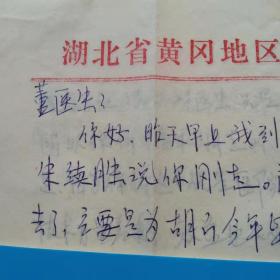 湖北省黄冈地区
董医生:
你好,昨天早上我到
朱续胜说你刚走。
去了,主要是为胡 今年